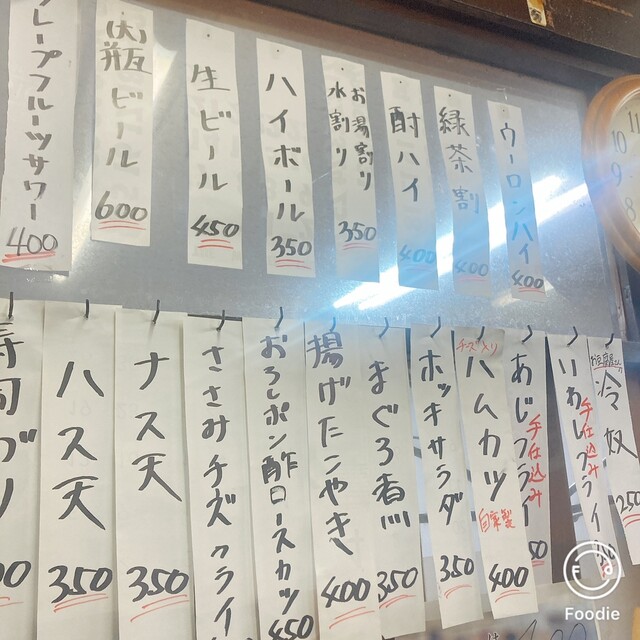 レープフルーツサワー
400
(大)瓶ビール
600
生ビール
450
ハイボール
350
お湯割り
水割り
350
酎ハイ
400
緑茶割
400
ウーロンハイ
400
寿司
ハス天
350
ナス天
350
ささみチーズフライ
おろしポン酢ロースカツ
450
揚げたこやき
400
まぐろ煮
350
ホッキサラダ
350
チーズ入り
ハムカツ
自家製
400
あじフライ
手仕込み
いわしフライ
手仕込み
冷奴
250
Foodie